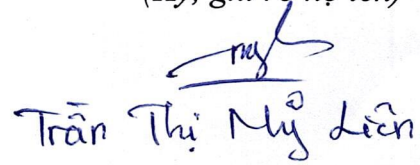 (Ký, ghi rõ họ tên)
Trần Thị Mỹ Liên